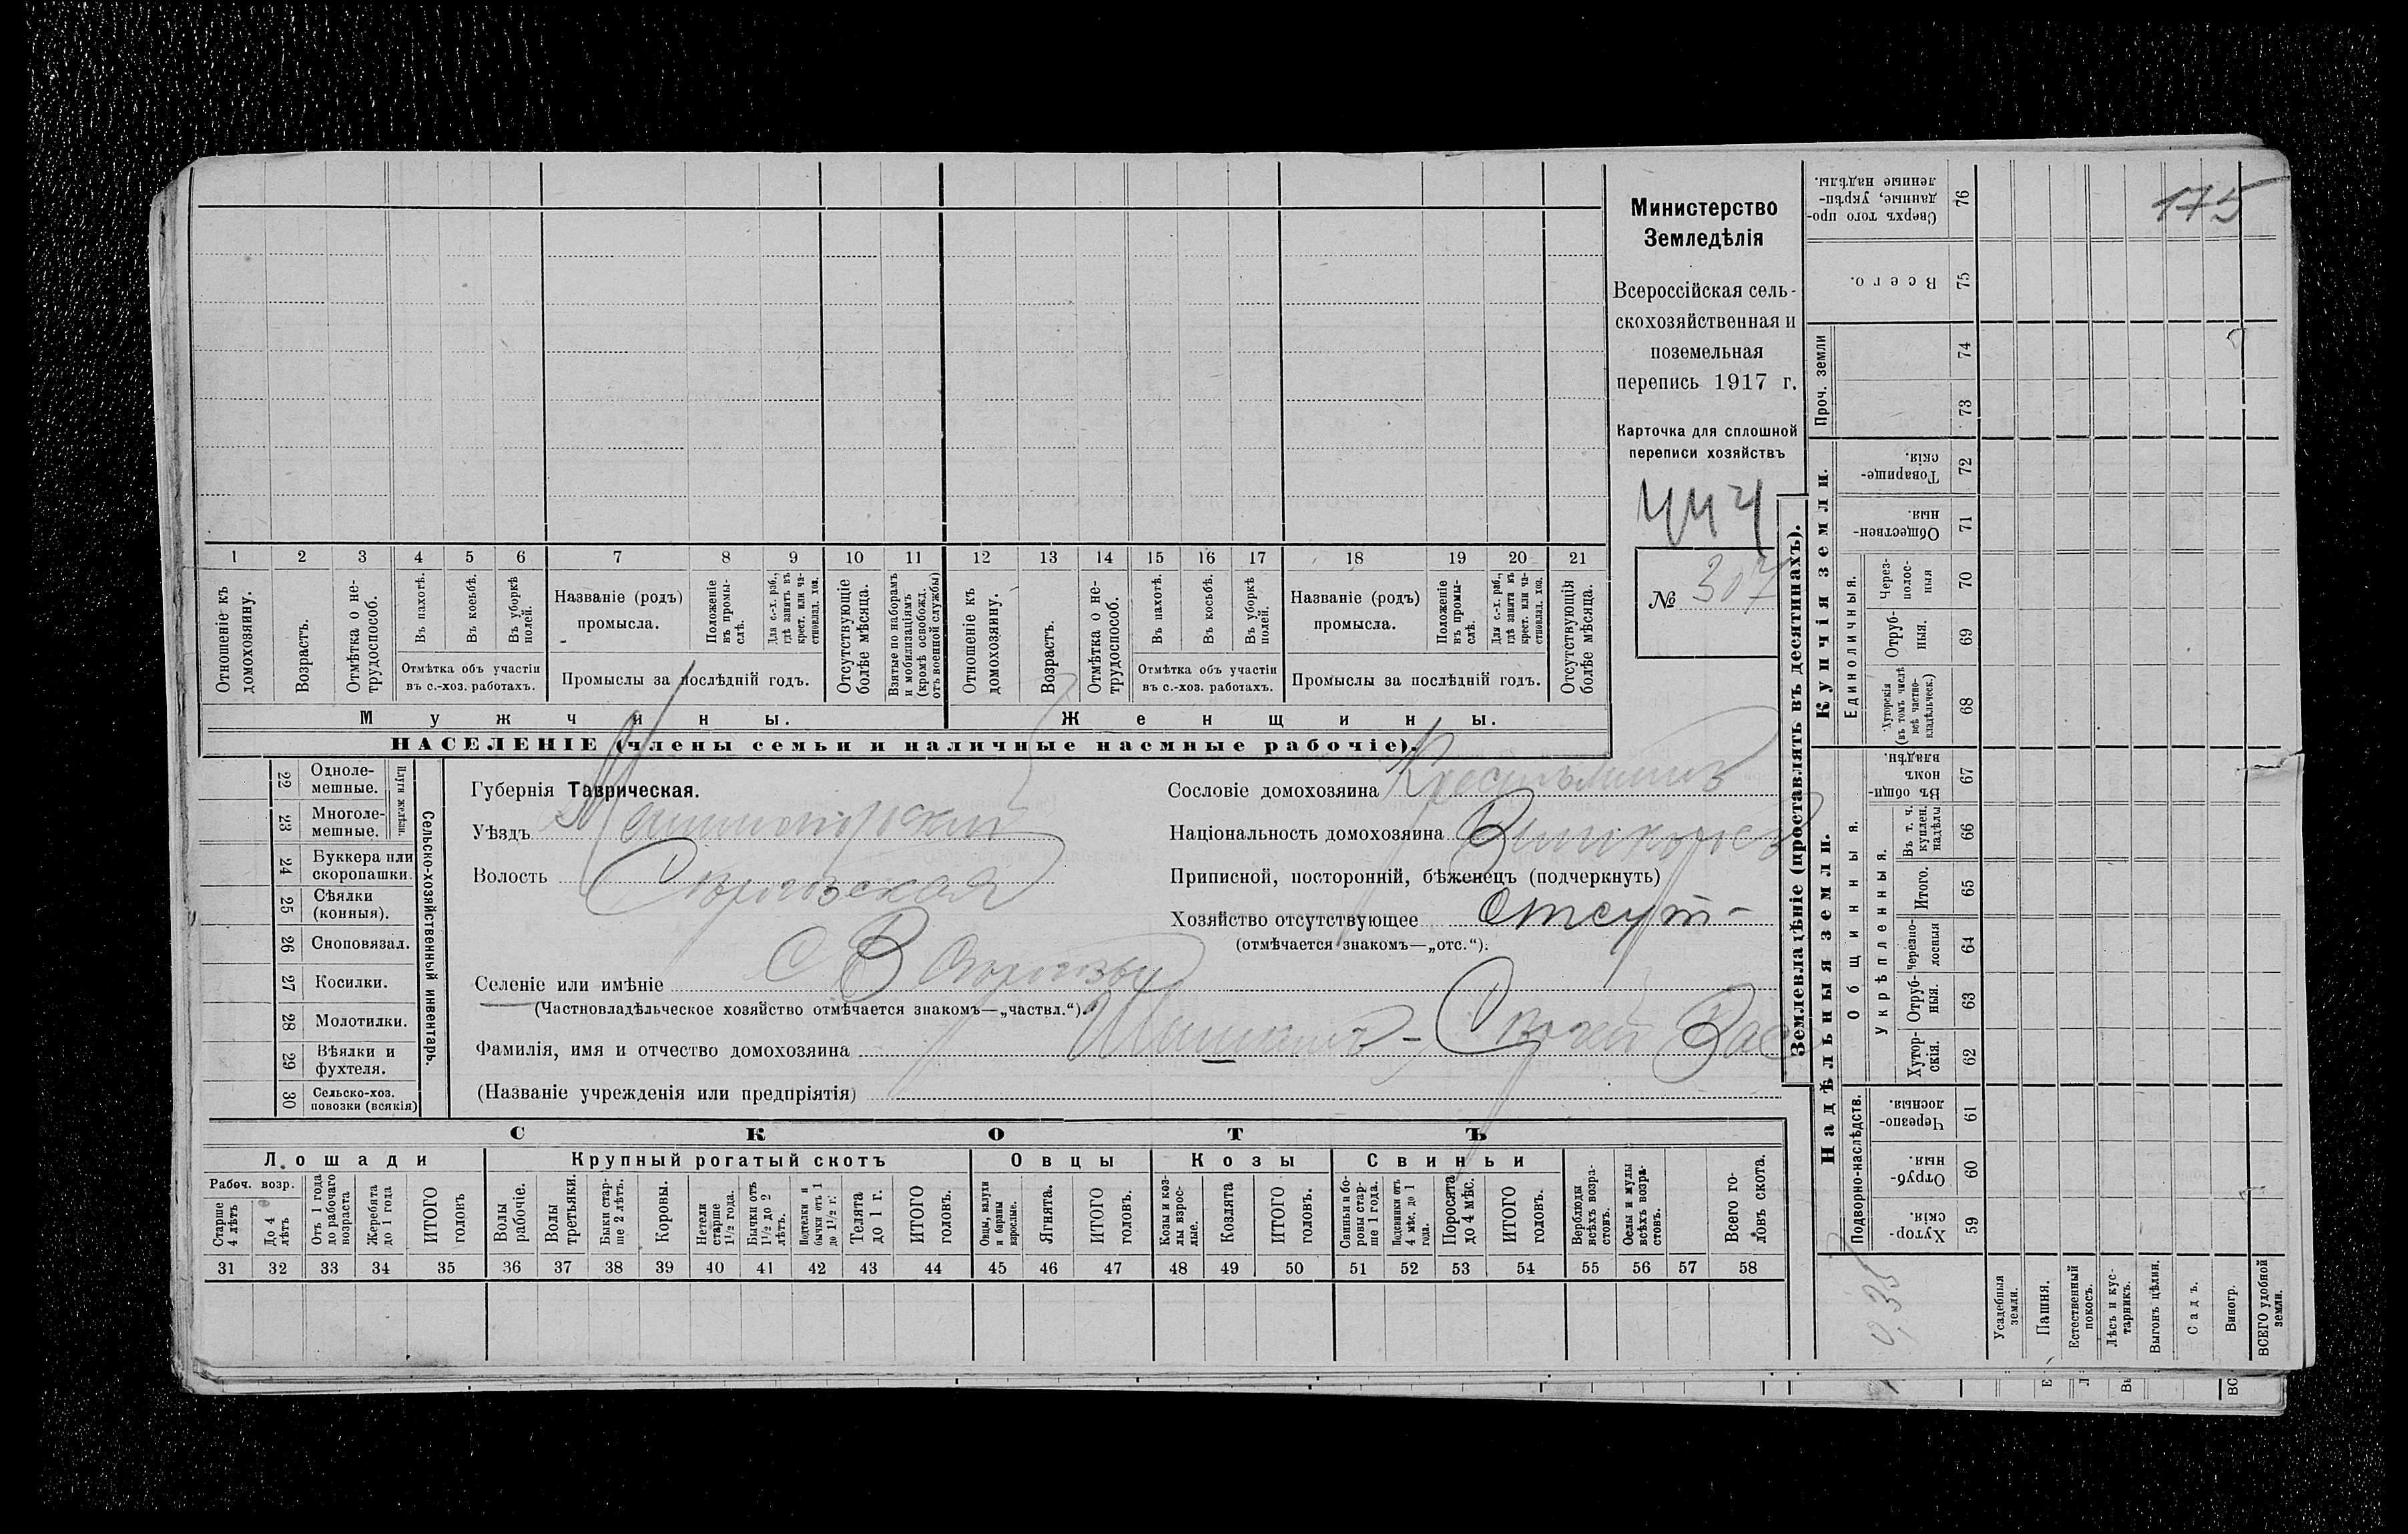 175
Министерство
Земледѣлія
Всероссійская сель-
скохозяйственная и
поземельная
перепись 1917 г.
Карточка для сплошной
переписи хозяйствъ
444
№ 307
1 2 3 4 5 6 7 8 9 10 11 12 13 14 15 16 17 18 19 20 21
Отношеніе къ домохозяину.
Возрастъ.
Отмѣтка о не-трудоспособ.
Въ пахотѣ.
Въ косьбѣ.
Въ уборкѣ полей.
Отмѣтка объ участіи
въ с.-хоз. работахъ.
Названіе (родъ)
промысла.
Положеніе въ промы-слѣ.
Для с.-х. раб., гдѣ занятъ въ крест. или ча-стновлад. хоз.
Промыслы за послѣдній годъ.
Отсутствующіе болѣе мѣсяца.
Взятые по наборамъ и мобилизаціямъ (кромѣ освобожд. отъ военной службы)
Отношеніе къ домохозяину.
Возрастъ.
Отмѣтка о не-трудоспособ.
Въ пахотѣ.
Въ косьбѣ.
Въ уборкѣ полей.
Отмѣтка объ участіи
въ с.-хоз. работахъ.
Названіе (родъ)
промысла.
Положеніе въ промы-слѣ.
Для с.-х. раб., гдѣ занята въ крест. или ча-стновлад. хоз.
Промыслы за послѣдній годъ.
Отсутствующія болѣе мѣсяца.
Мужчины.
Женщины.
НАСЕЛЕНІЕ (члены семьи и наличные наемные рабочіе).
22 Одноле-мешные.
23 Многоле-мешные.
Плуги желѣзн.
24 Буккера или скоропашки.
25 Сѣялки (конныя).
26 Сноповязал.
27 Косилки.
28 Молотилки.
29 Вѣялки и фухтеля.
30 Сельско-хоз. повозки (всякія)
Сельско-хозяйственный инвентарь.
Губернія Таврическая.
Уѣздъ
Волость
Селеніе или имѣніе с
(Частновладѣльческое хозяйство отмѣчается знакомъ—„частвл.“).
Фамилія, имя и отчество домохозяина
(Названіе учрежденія или предпріятія)
Сословіе домохозяина Крестьянинъ
Національность домохозяина
Приписной, посторонній, бѣженецъ (подчеркнуть)
Хозяйство отсутствующее Отсут-
(отмѣчается знакомъ—„отс.“).
СКОТЪ
Лошади
Крупный рогатый скотъ
Овцы
Козы
Свиньи
Рабоч. возр.
Старше 4 лѣтъ
До 4 лѣтъ
Отъ 1 года до рабочаго возраста
Жеребята до 1 года
ИТОГО головъ
Волы рабочіе.
Волы третьяки.
Быки стар-ше 2 лѣтъ.
Коровы.
Нетели старше 1½ года.
Бычки отъ 1½ до 2 лѣтъ.
Подтелки и бычки отъ 1 до 1½ г.
Телята до 1 г.
ИТОГО головъ.
Овцы, валухи и бараны взрослые.
Ягнята.
ИТОГО головъ.
Козы и коз-лы взрос-лые.
Козлята
ИТОГО головъ.
Свиньи и бо-ровы стар-ше 1 года.
Подсвинки отъ 4 мѣс. до 1 года.
Поросята до 4 мѣс.
ИТОГО головъ.
Верблюды всѣхъ возра-стовъ.
Ослы и мулы всѣхъ возра-стовъ.
Всего го-ловъ скота.
31 32 33 34 35 36 37 38 39 40 41 42 43 44 45 46 47 48 49 50 51 52 53 54 55 56 57 58
Землевладѣніе (проставлять въ десятинахъ).
Надѣльныя земли.
Купчія земли.
Проч. земли
Подворно-наслѣдств.
Общинныя.
Укрѣпленныя.
Единоличныя.
Сверхъ того про-данные, укрѣп-ленные надѣлы. 76
Всего. 75
74
73
Товарище-скія. 72
Обществен-ныя. 71
Через-полос-ныя 70
Отруб-ныя. 69
Хуторскія (въ томъ числѣ всѣ частно-владѣльческ.) 68
Въ общин-номъ владѣн. 67
Въ т. ч. куплен. надѣлы 66
Итого. 65
Черезпо-лосныя 64
Отруб-ныя. 63
Хутор-скія. 62
Черезпо-лосныя. 61
Отруб-ныя. 60
Хутор-скія. 59
Усадебныя земли.
Пашня.
Естественный покосъ.
Лѣсъ и кус-тарникъ.
Выгонъ цѣлин.
Садъ.
Виногр.
ВСЕГО удобной земли.